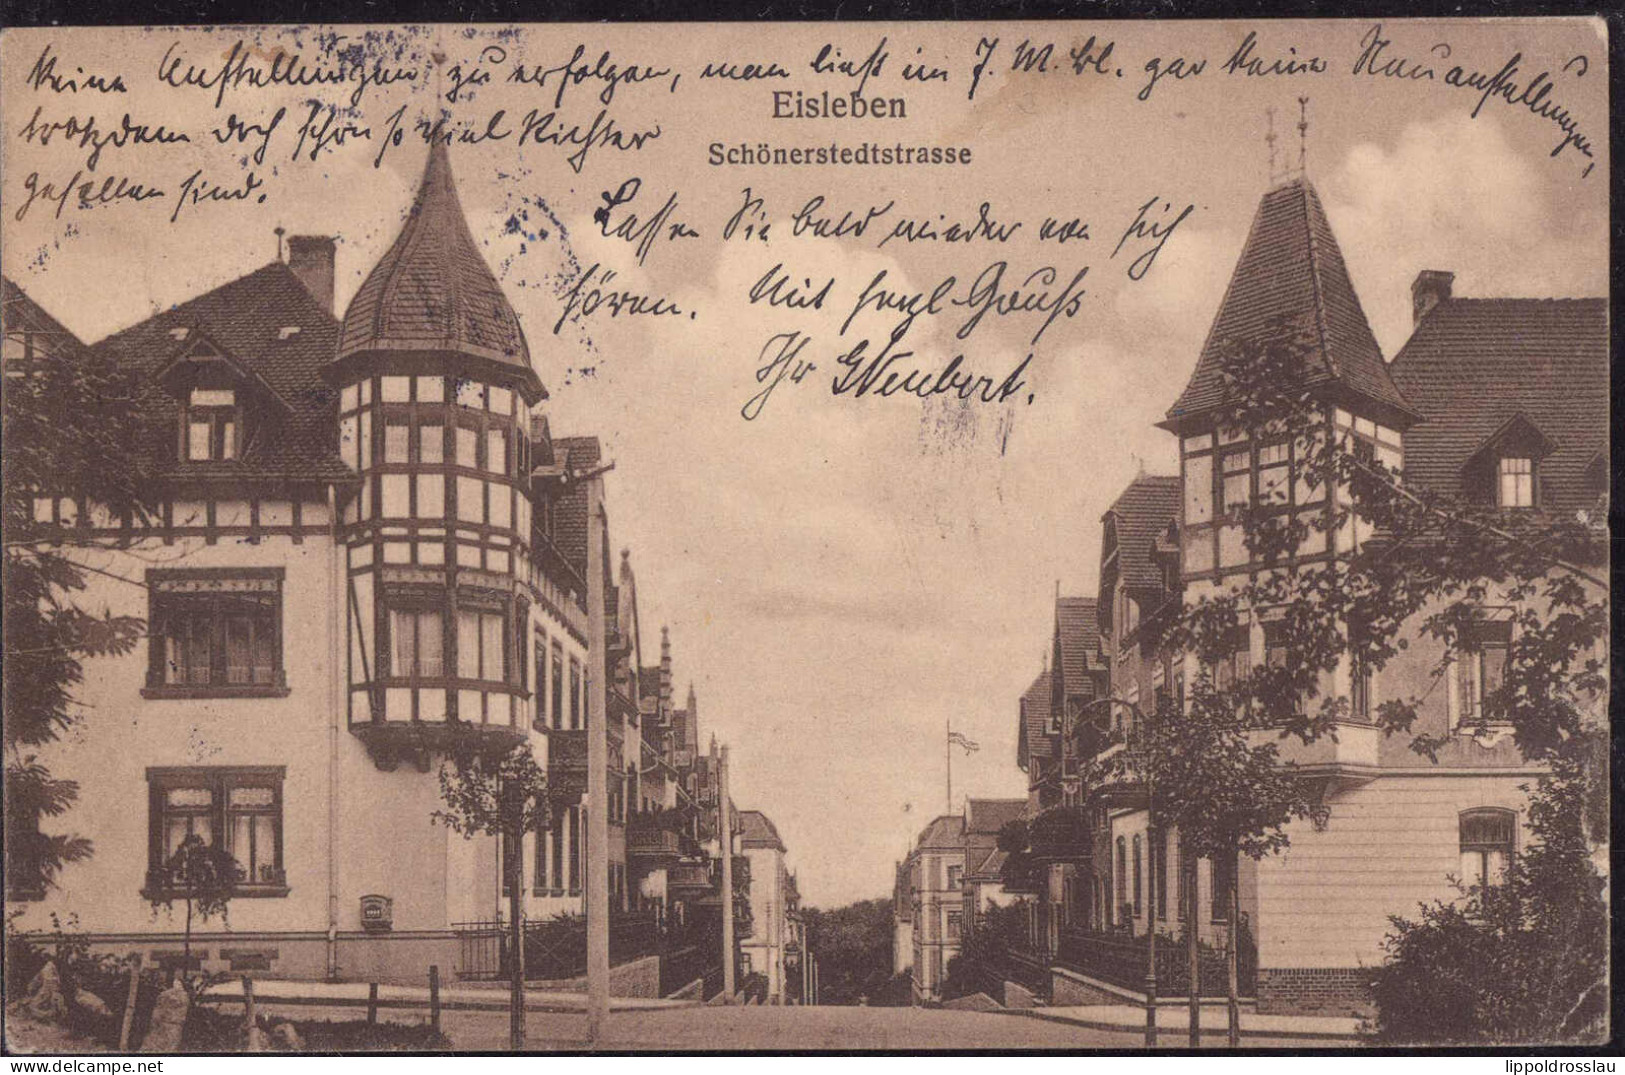 keine Anstellungen zu erfolgen, man ließt im J. M. Bl. gar keine Neuanstellungen,
trotzdem doch schon so viel Richter
gefallen sind.
Eisleben
Schönerstedtstrasse
Lassen Sie bald wieder von sich
hören. Mit herzl. Gruß
Ihr GNeubert.
lippoldrosslau